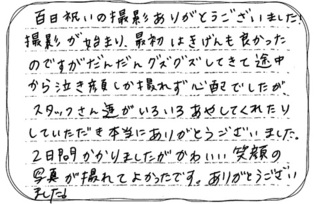 百日祝いの撮影ありがとうございました!
撮影が始まり、最初はきげんも良かった
のですがだんだんグズグズしてきて途中
から泣き顔しか撮れず心配でしたが、
スタッフさん達がいろいろあやしてくれたり
していただき本当にありがとうございました。
2日間かかりましたがかわいい笑顔の
写真が撮れてよかったです。ありがとうござい
ました!